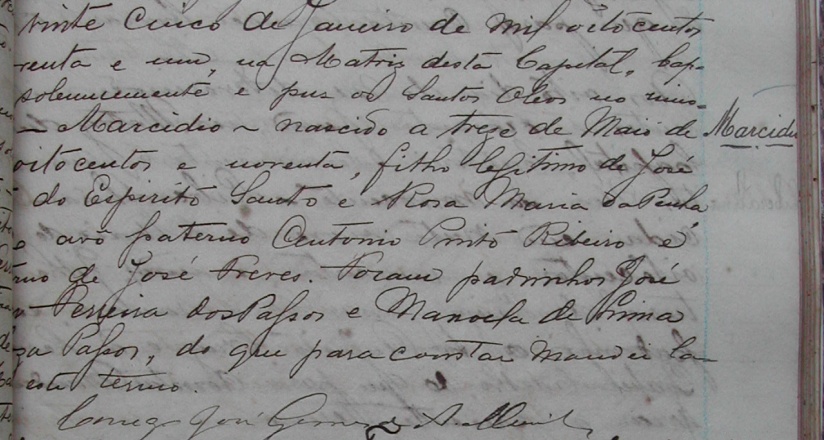 vinte Cinco de Janeiro de mil oitocentos
renta e um, na Matriz desta Capital, bap-
solemnemente e puz os Santos Oleos no inno-
Marcidio - nascido a treze de Maio de Marcidi
oitocentos e noventa, filho legitimo de José
do Espirito Santo e Rosa Maria da Penha
avô paterno Antonio Pinto Ribeiro e
rno de José Preres. Foram padrinhos José
Ferreira dos Passos e Manoela de Lima
Passos, do que para constar mandei la-
este termo.
Conego José Gomes